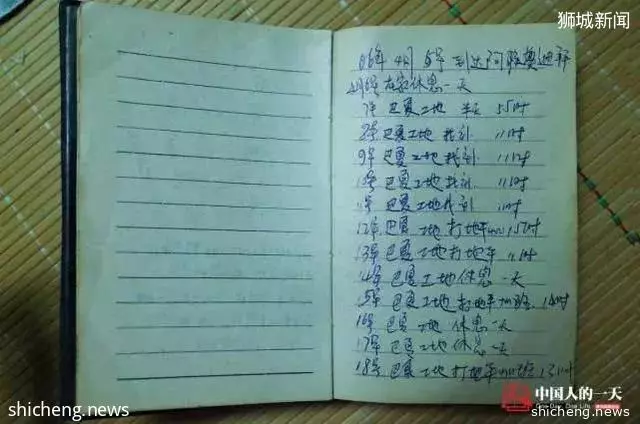 狮城新闻
06年 4月 5号 到达阿联奠迪拜
4月6号 在家休息一天
7号 巴夏工地 半天 5.5时
8号 巴夏工地 找到 11时
9号 巴夏工地 找到 11时
10号 巴夏工地 找到 11时
11号 巴夏工地 找到 11时
12号 巴夏工地 打地平 15时
13号 巴夏工地 打地平 11时
14号 巴夏工地 休息一天
15号 巴夏工地 打地平加班 14时
16号 巴夏工地 休息一天
17号 巴夏工地 休息一天
18号 巴夏工地 打地平加班 13时
中国人的一天
One Day, One Life
shicheng.news
shicheng.news